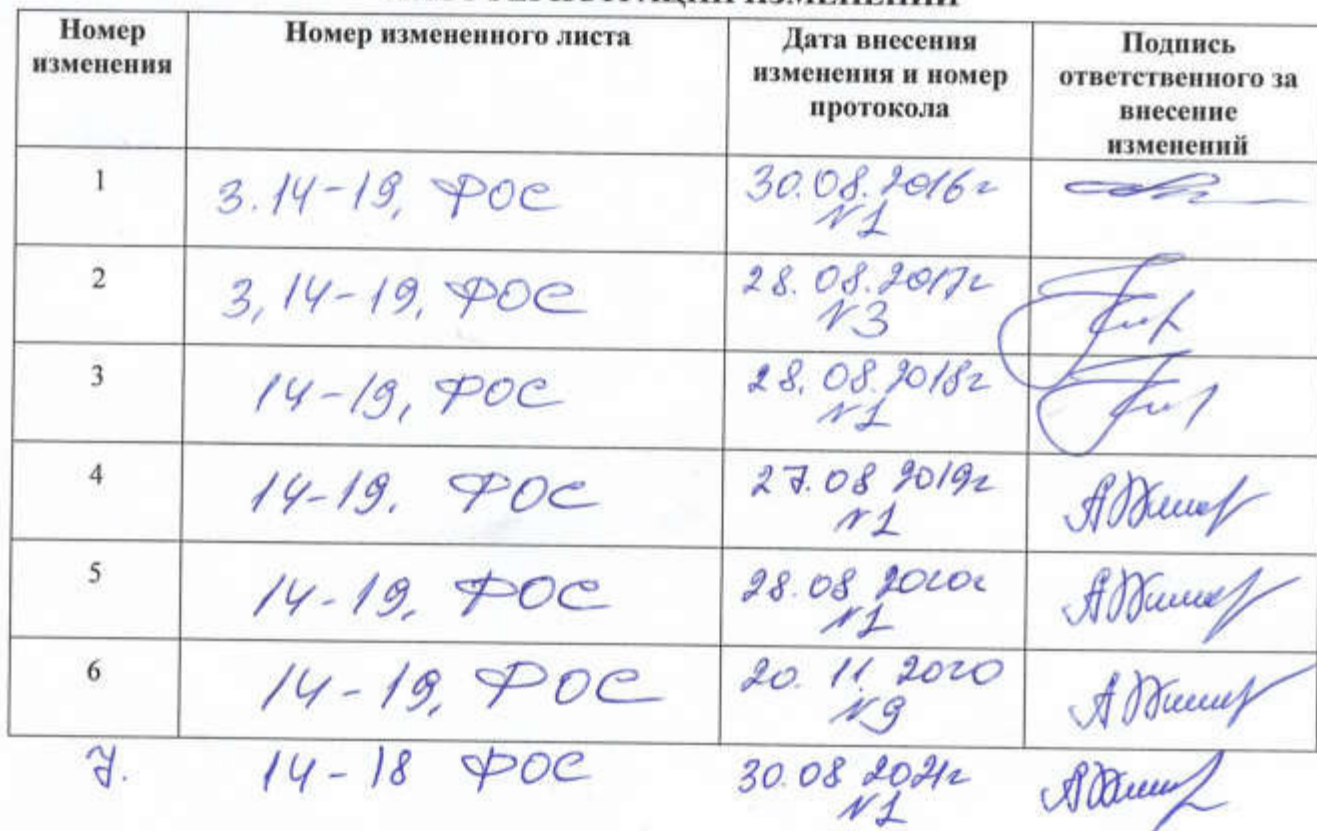 Номер изменения
Номер измененного листа
Дата внесения изменения и номер протокола
Подпись ответственного за внесение изменений
1
3.14-19, ФОС
30.08.2016г
N1
2
3,14-19, ФОС
28.08.2017г
N3
3
14-19, ФОС
28.08.2018г
N1
4
14-19. ФОС
27.08 2019г
N1
5
14-19, ФОС
28.08 2020г
N1
6
14-19, ФОС
20. 11. 2020
N9
7.
14-18 ФОС
30.08 2021г
N1